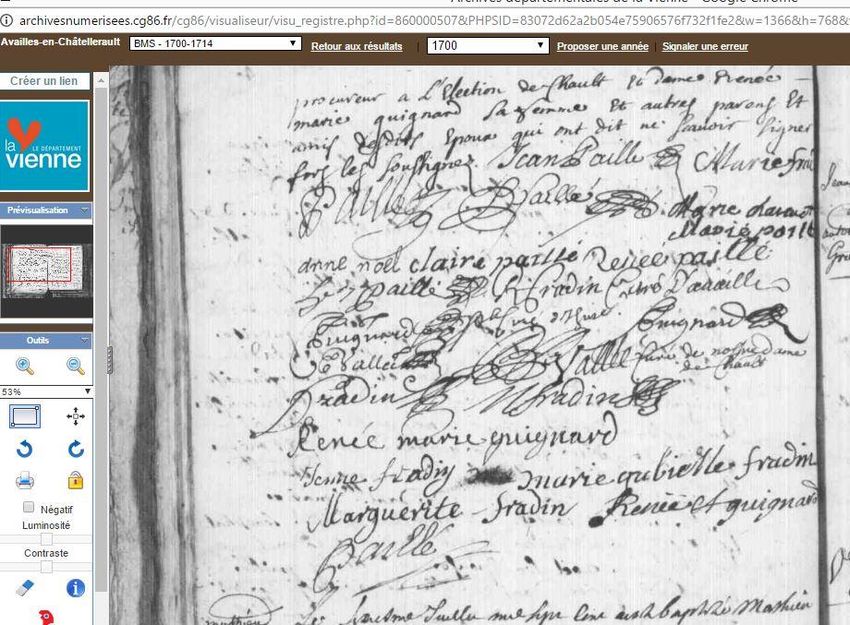 Archives départementales de la Vienne - Google Chrome
archivesnumerisees.cg86.fr/cg86/visualiseur/visu_registre.php?id=860000507&PHPSID=83072d62a2b054e75906576f732f1fe2&w=1366&h=768&
Availles-en-Châtellerault
BMS - 1700-1714
Retour aux résultats
1700
Proposer une année
Signaler une erreur
Créer un lien
la
vienne
LE DÉPARTEMENT
Prévisualisation
Outils
53%
Négatif
Luminosité
Contraste
procureur a L'Election de Chault Et dame Renée
marie guignard Sa femme Et autres parens Et
amis desdits Epoux qui ont dit ne scavoir signer
fors les soussignez Jean Paillé Marie
Paillé Paillé Marie
Marie
anne noel claire paillé Renée paillé
Paillé R fradin Curé D'availle
Guignard Guignard
Paillé curé de nostre dame
de Chault
fradin fradin
Renée marie guignard
fradin marie gabrielle fradin
Marguerite fradin Renée guignard
Paillé
Le Juillet mil sept Cent a esté baptisé Mathieu